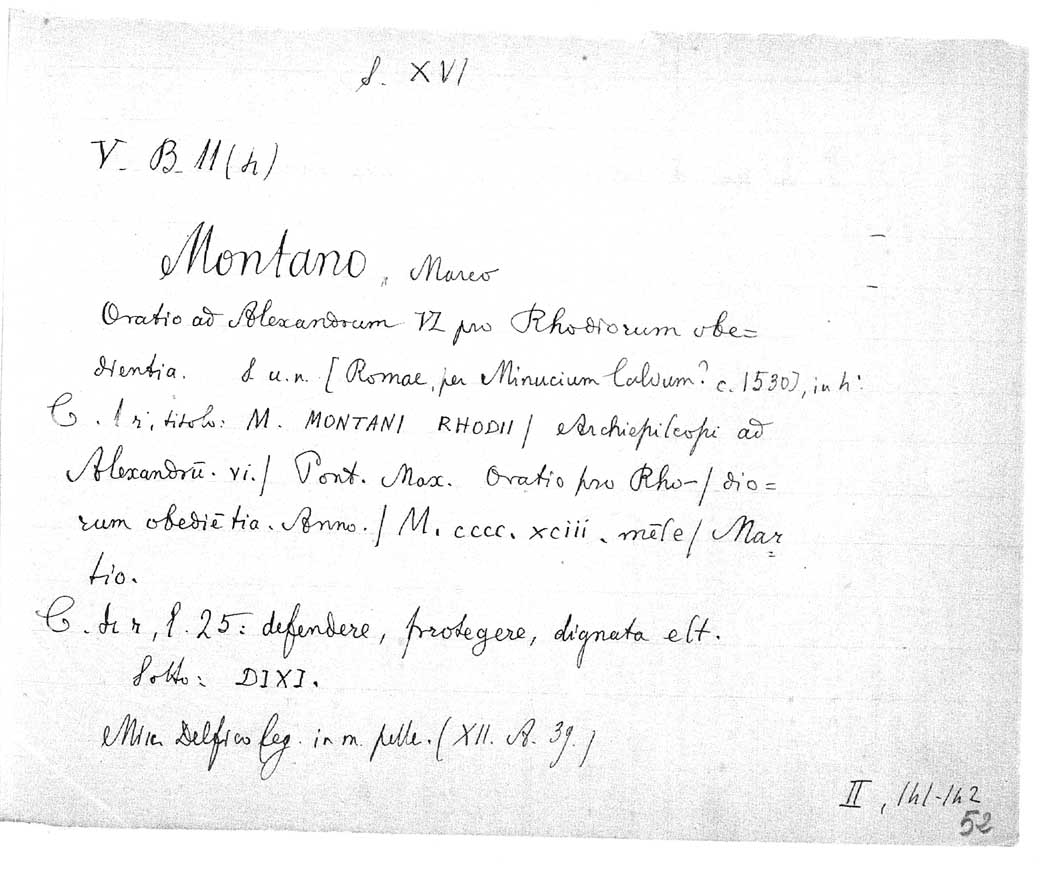 S. XVI
V. B. 11 (4)
Montano, Marco
Oratio ad Alexandrum VI pro Rhodiorum obe=
dientia. S u. n. [Romae, per Minucium Calvum? c. 1530], in 4°.
C. 1 r, titolo: M. MONTANI RHODII / Archiepiſcopi ad
Alexandrū. vi. / Pont. Max. Oratio pro Rho- / dio=
rum obediētia. Anno. / M. cccc. xciii. mēſe / Mar
tio.
C. 4 r, l. 25: defendere, protegere, dignata eſt.
Sotto: DIXI.
Misc. Delfico leg. in m. pelle. (XII. A. 39.)
II, 141-142
52